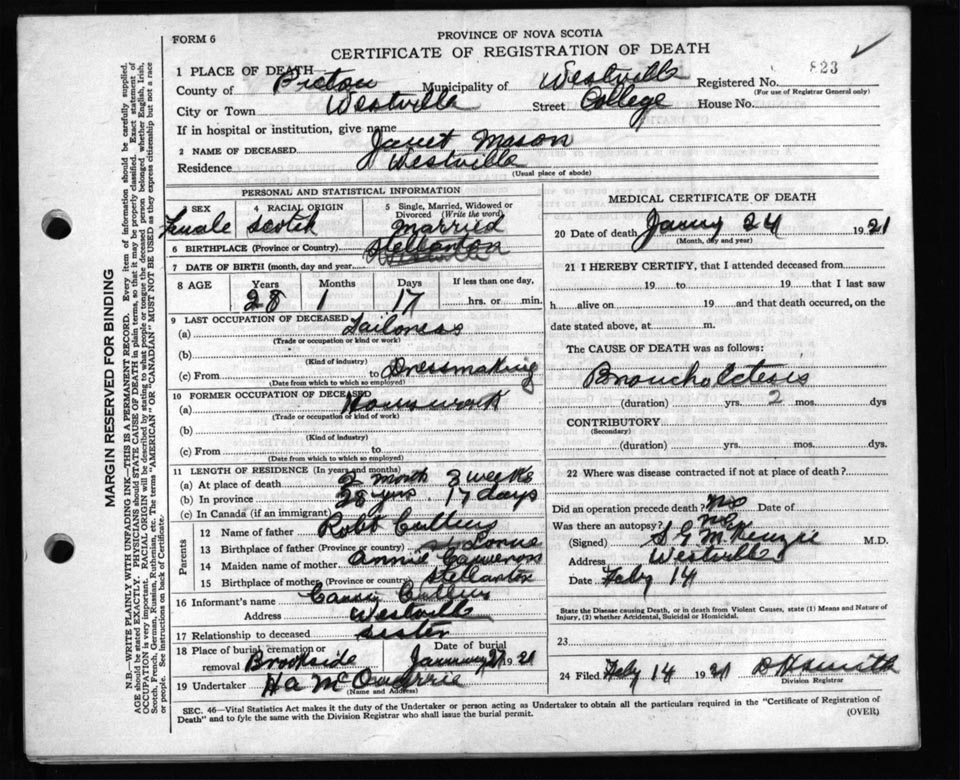 FORM 6
PROVINCE OF NOVA SCOTIA
CERTIFICATE OF REGISTRATION OF DEATH
823
1 PLACE OF DEATH
County of Pictou Municipality of Westville Registered No.
(For use of Registrar General only)
City or Town Westville Street College House No.
If in hospital or institution, give name
2 NAME OF DECEASED Janet Mason
Residence Westville
(Usual place of abode)
PERSONAL AND STATISTICAL INFORMATION
3 SEX 4 RACIAL ORIGIN 5 Single, Married, Widowed or Divorced (Write the word)
Female Scotch Married
6 BIRTHPLACE (Province or Country) Stellarton
Westville
7 DATE OF BIRTH (month, day and year)
8 AGE Years Months Days If less than one day,
28 1 17 hrs. or min.
9 LAST OCCUPATION OF DECEASED
(a) Tailoress
(Trade or occupation or kind or work)
(b)
(Kind of industry)
(c) From to Dressmaking
(Date from which to which so employed)
10 FORMER OCCUPATION OF DECEASED
(a) Housework
(Trade or occupation or kind of work)
(b)
(Kind of industry)
(c) From to
(Date from which to which so employed)
11 LENGTH OF RESIDENCE (In years and months)
(a) At place of death 2 month 3 weeks
(b) In province 28 yrs. 17 days
(c) In Canada (if an immigrant)
Parents
12 Name of father Robt
13 Birthplace of father (Province or country) Lorne
14 Maiden name of mother Annie
15 Birthplace of mother (Province or country) Stellarton
16 Informant's name
Address Westville
17 Relationship to deceased sister
18 Place of burial, cremation or removal Brookside Date of burial January 27 1921
19 Undertaker H a McQuarrie
(Name and Address)
MEDICAL CERTIFICATE OF DEATH
20 Date of death Janry 24 1921
(Month, day and year)
21 I HEREBY CERTIFY, that I attended deceased from
19 to 19 that I last saw
h alive on 19 and that death occurred, on the
date stated above, at m.
The CAUSE OF DEATH was as follows:
(duration) yrs. 2 mos. dys
CONTRIBUTORY
(Secondary)
(duration) yrs. mos. dys.
22 Where was disease contracted if not at place of death?
Did an operation precede death? No Date of
Was there an autopsy? no
(Signed) S G McKenzie M.D.
Address Westville
Date Feby 14
State the Disease causing Death, or in death from Violent Causes, state (1) Means and Nature of
Injury, (2) whether Accidental, Suicidal or Homicidal.
23
24 Filed Feby 14 1921 D H Smith
Division Registrar
SEC. 46—Vital Statistics Act makes it the duty of the Undertaker or person acting as Undertaker to obtain all the particulars required in the "Certificate of Registration of
Death" and to fyle the same with the Division Registrar who shall issue the burial permit.
(OVER)
MARGIN RESERVED FOR BINDING
N.B.—WRITE PLAINLY WITH UNFADING INK—THIS IS A PERMANENT RECORD. Every item of information should be carefully supplied.
AGE should be stated EXACTLY. PHYSICIANS should STATE CAUSE OF DEATH in plain terms, so that it may be properly classified. Exact statement of
OCCUPATION is very important. RACIAL ORIGIN will be described by stating to what people or tongue the deceased person belonged whether English, Irish,
Scotch, French, German, Russian, Ruthenian, etc. The terms "AMERICAN" OR "CANADIAN" MUST NOT BE USED as they express citizenship but not a race
or people. See instructions on back of Certificate.